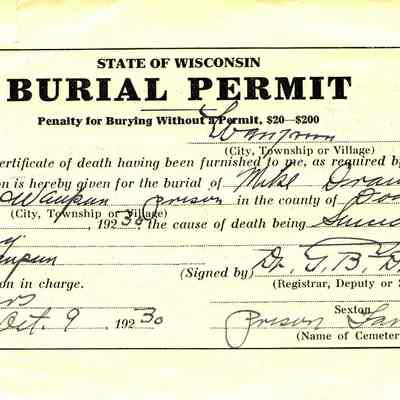 STATE OF WISCONSIN
BURIAL PERMIT
Penalty for Burying Without a Permit, $20—$200
(City, Township or Village)
ertificate of death having been furnished to me, as required by
on is hereby given for the burial of Mike
Waupun prison in the county of
(City, Township or Village)
, 1930, the cause of death being
upun
(Signed by) Dr. G. B.
(Registrar, Deputy or S
on in charge.
rs
Oct. 9 , 19230
Sexton
Prison
(Name of Cemeter